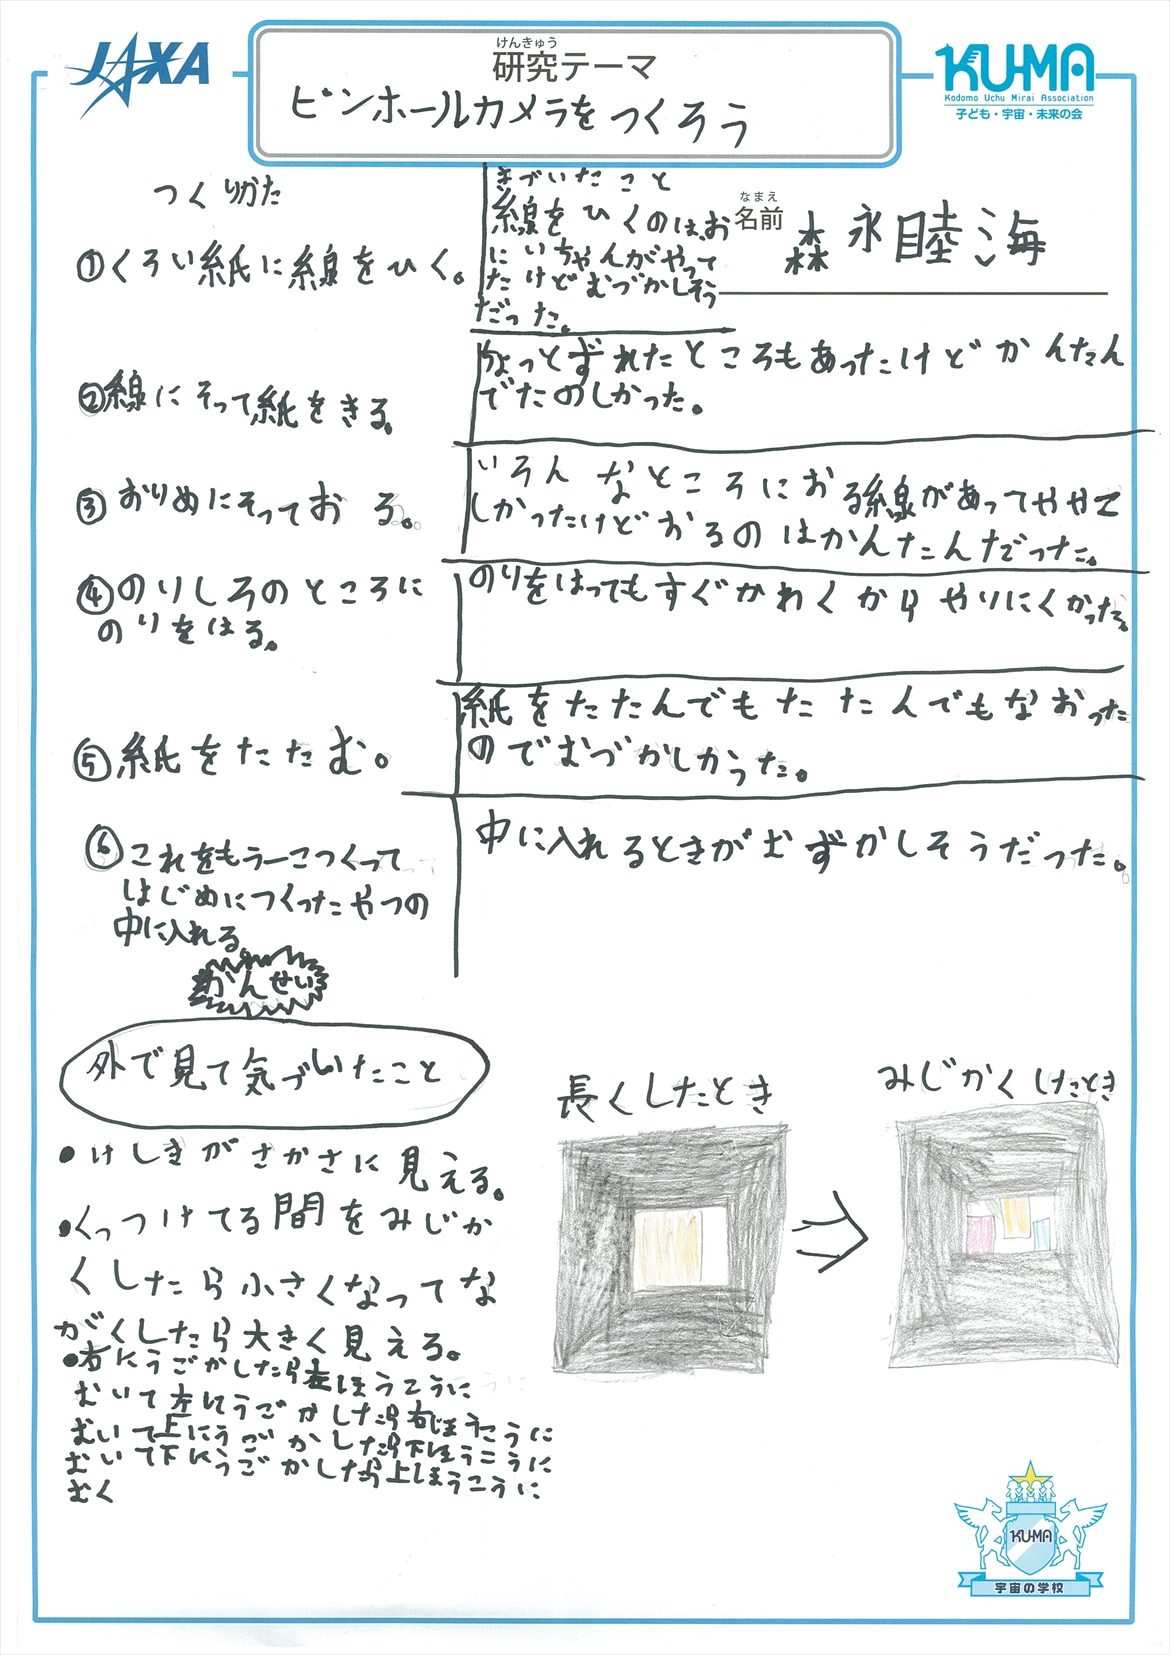 JAXA
けんきゅう
研究テーマ
ピンホールカメラをつくろう
KU-MA
Kodomo Uchu Mirai Association
子ども・宇宙・未来の会
なまえ
名前
森永睦海
つくりかた
①くろい紙に線をひく。
きづいたこと
線をひくのは、お
にいちゃんがやって
たけどむづかしそう
だった。
②線にそって紙をきる。
ちょっとずれたところもあったけどかんたん
でたのしかった。
③おりめにそっておる。
いろんなところにおる線があってややこ
しかったけどおるのはかんたんだった。
④のりしろのところに
のりをはる。
のりをはってもすぐかわくからやりにくかった。
⑤紙をたたむ。
紙をたたんでもたたんでもなおった
のでむづかしかった。
⑥これをもう一こつくって
はじめにつくったやつの
中に入れる
中に入れるときがむずかしそうだった。
かんせい
外で見て気づいたこと
•けしきがさかさに見える。
•くっつけてる間をみじか
くしたら小さくなってな
がくしたら大きく見える。
•右にうごかしたら左ほうこうに
むいて左にうごかしたら右ほうこうに
むいて上にうごかしたら下ほうこうに
むいて下にうごかしたら上ほうこうに
むく
長くしたとき
みじかくしたとき
KU-MA
宇宙の学校